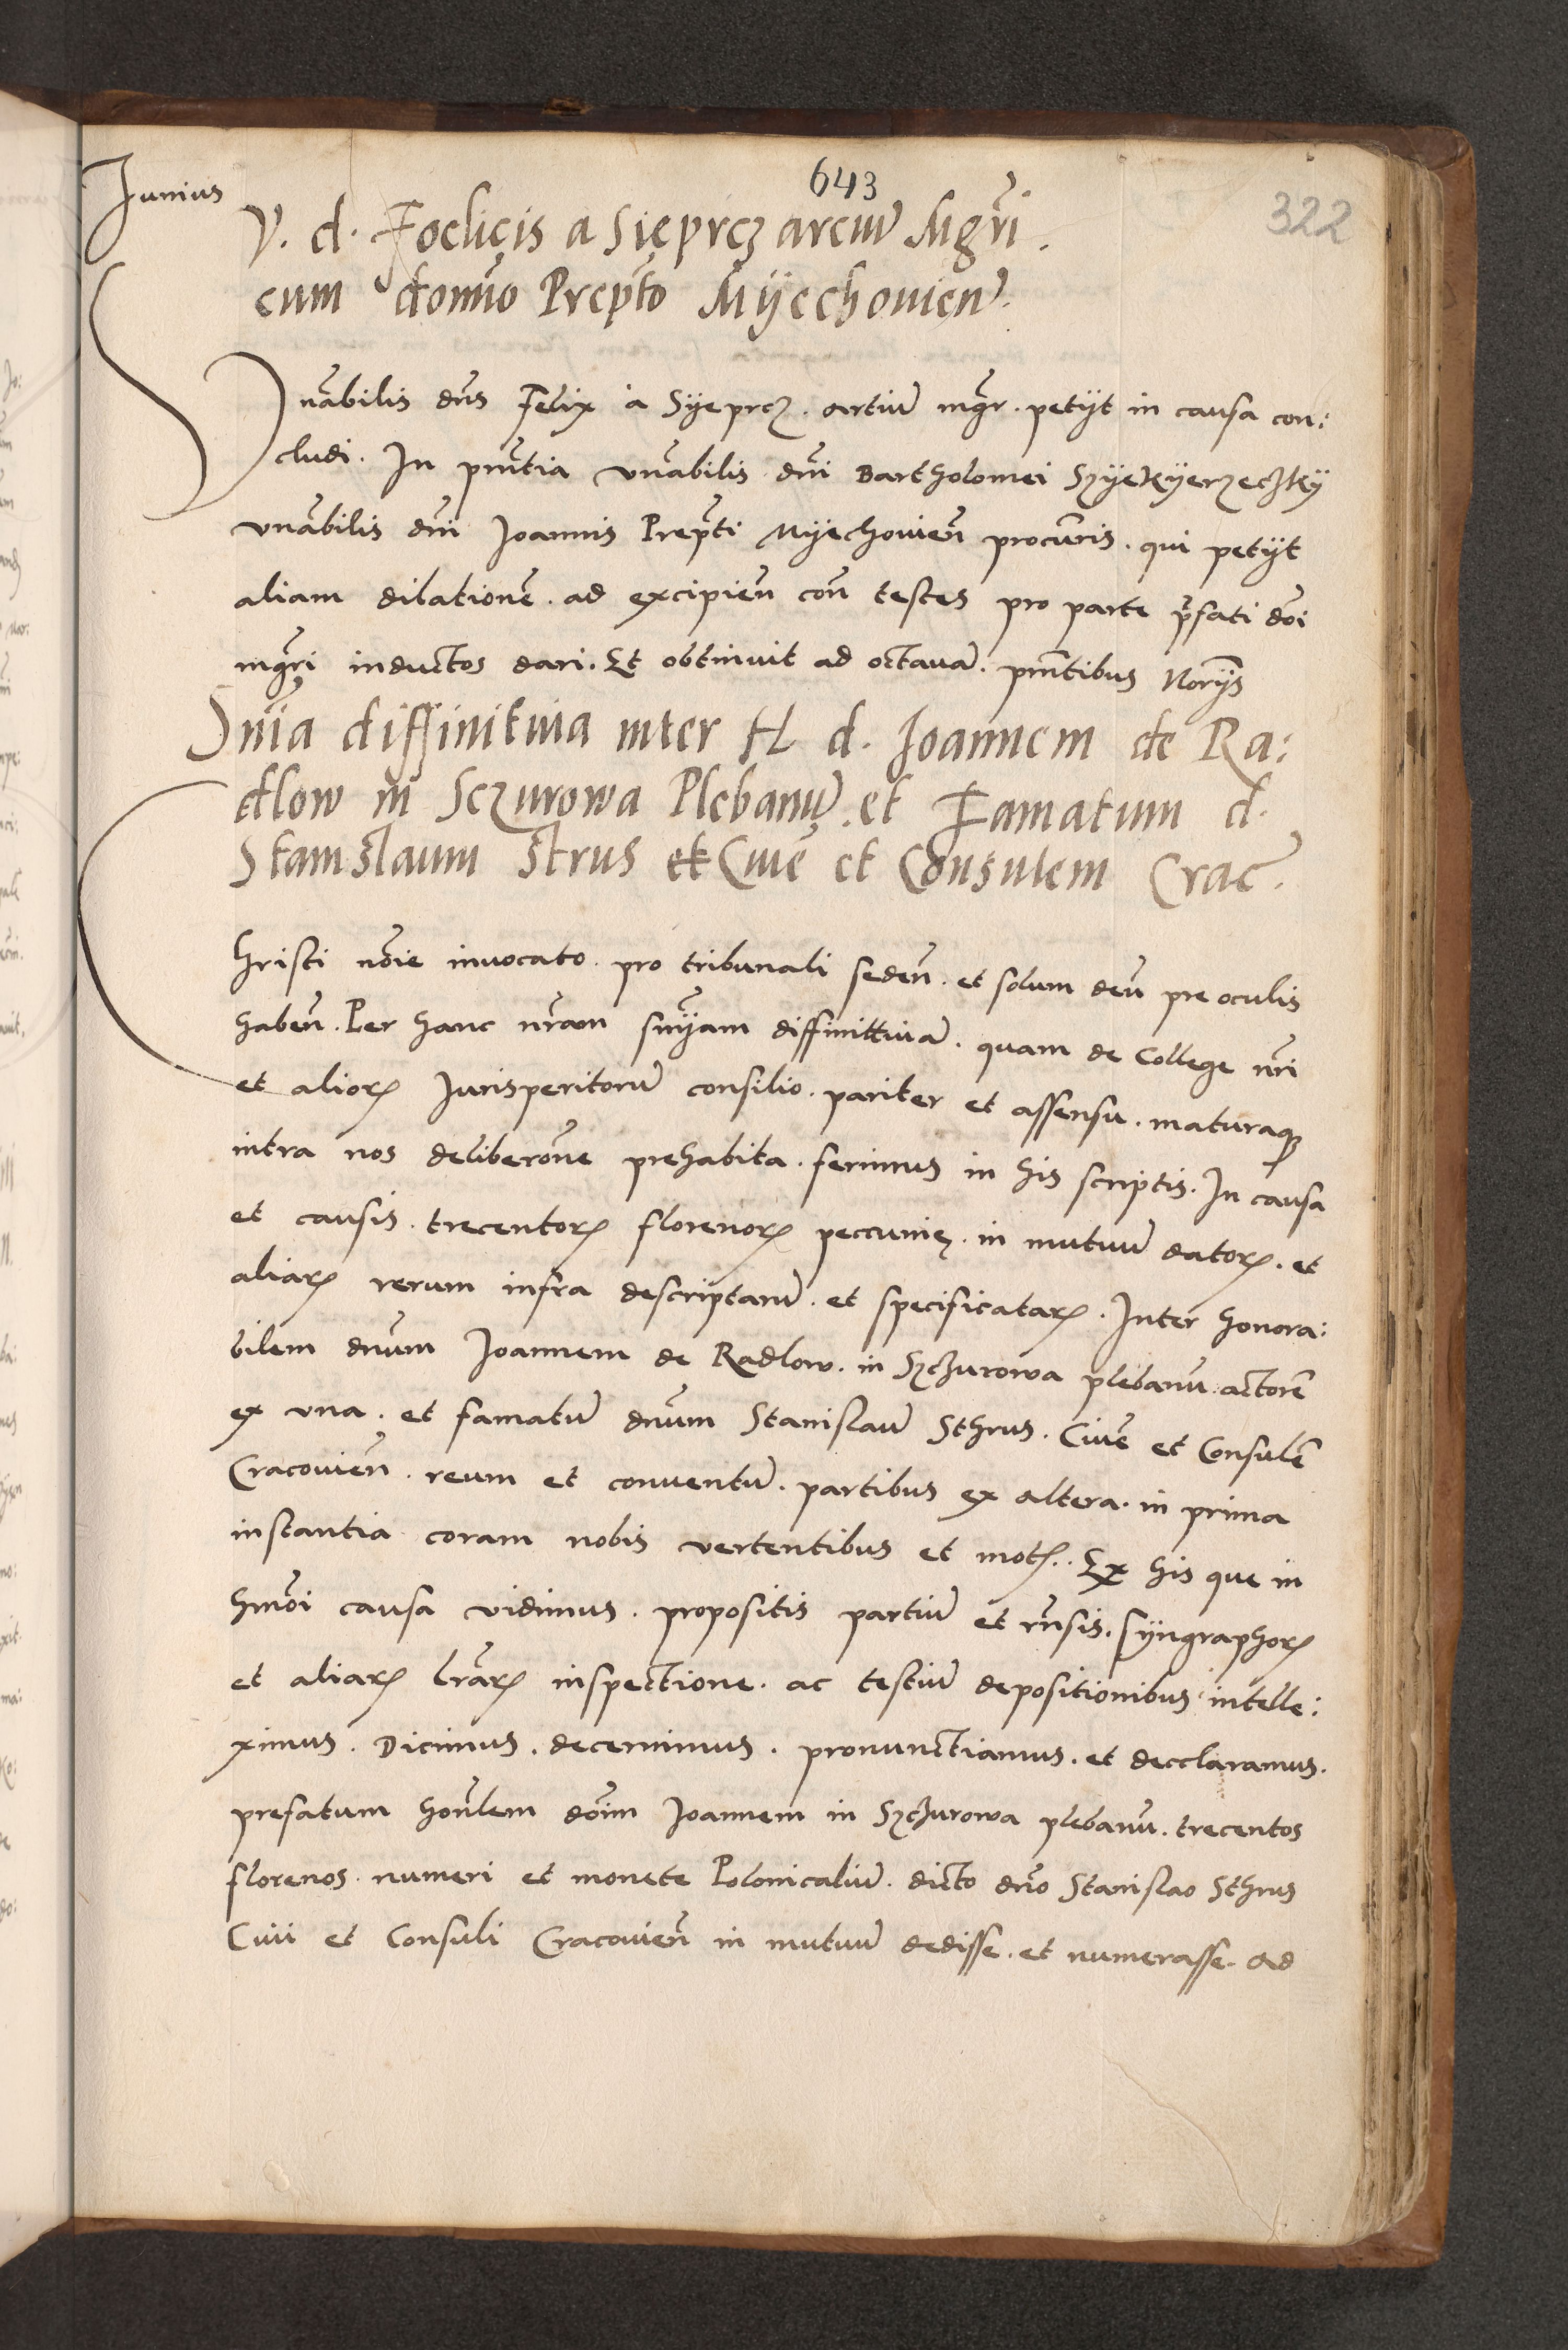 Junius
643
322
V. d. Foelicis a Sieprcz arciũ Mgr̃i.
cum dom̃o Prep̃to Mÿechouien̄.
Vn̄abilis dn̄s Felix a Sÿeprcz. artiũ mgr̄. petÿt in causa con:
cludi. In pn̄tia vn̄abilis dn̄i Bartholomei
vn̄abilis dn̄i Joannis Prep̄ti Mÿechouien̄ procur̄is. qui petÿt
aliam dilationẽ. ad excipien̄ con̄ testes pro parte p̄fati dn̄i
mgr̄i inductos dari. Et obtinuit ad octauã. pn̄tibus Norÿs
Sn̄ia diffinitiua inter H d. Joannem de Ra:
dlow in Sczurowa Plebanũ. et Famatum d.
Stanislaum Strus et Ciuẽ et Consulem Crac̄.
Christi nōie inuocato. pro tribunali seden̄. et solum deũ pre oculis
haben̄. Per hanc nr̄am sn̄iam diffinittiuã. quam de College nr̄i
et alioꝝ Jurisperitorũ consilio. pariter et assensu. maturaqꝫ
intra nos deliberōne prehabita. ferimus in his scriptis. In causa
et causis. trecentoꝝ florenoꝝ peccunię. in mutuũ datoꝝ. et
aliaꝝ rerum infra descriptarũ. et specificataꝝ. Inter honora:
bilem dn̄um Joannem de Radlow. in Sczurowa plebanũ actorẽ
ex vna. et famatũ dn̄um Stanislaũ Sthrus. Ciuẽ et Consulẽ
Cracouien̄. reum et conuentũ. partibus ex altera. in prima
instantia coram nobis vertentibus et motꝭ. Ex his que in
hmōi causa vidimus. propositis partiũ et rn̄sis. sÿngraphoꝝ
et aliaꝝ lr̄aꝝ inspectione. ac testiũ depositionibus intelle:
ximus. Dicimus. decernimus. pronunctiamus. et decclaramus.
prefatum hon̄lem dōim Joannem in Sczurowa plebanũ. trecentos
florenos numeri et monete Polonicaliũ. dicto dn̄o Stanislao Sthrus
Ciui et Consuli Cracouien̄ in mutuũ dedisse. et numerasse. ad